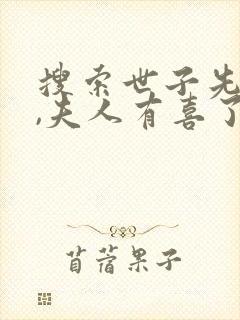 搜索世子先
,夫人有喜了
苜蓿果子